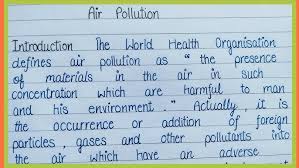 Air Pollution
Introduction The World Health Organisation
defines air pollution as " the presence
of materials in the air in such
concentration which are harmful to man
and his environment. " Actually, it is
the occurrence or addition of foreign
particles, gases and other pollutants into
the air which have an adverse